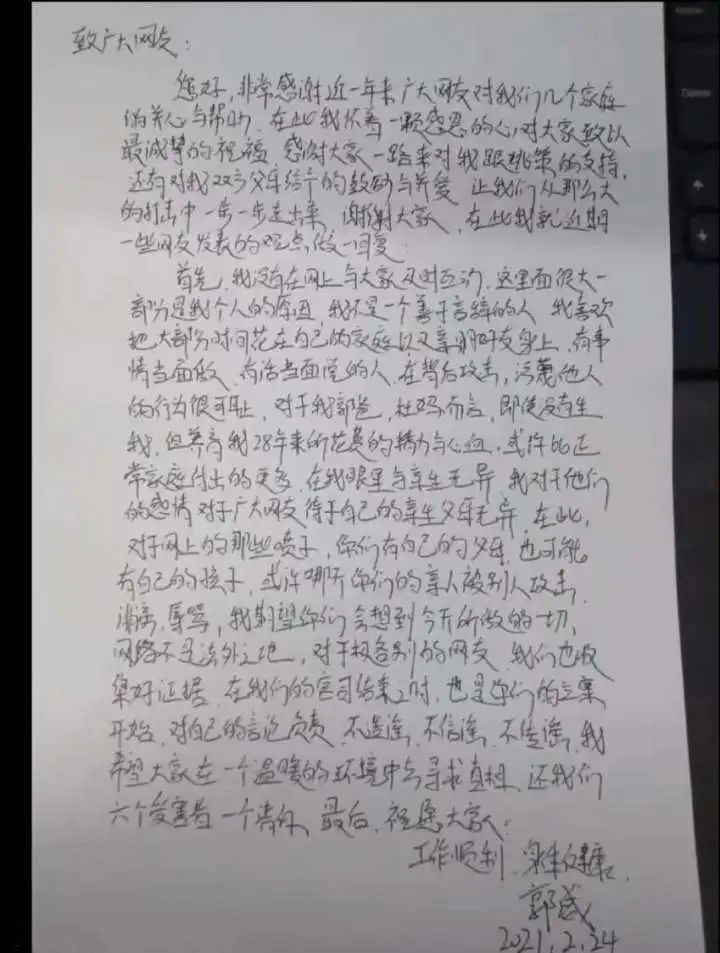 致广大网友：
您好，非常感谢近一年来广大网友对我们几个家庭
的关心与帮助，在此我怀着一颗感恩的心，对大家致以
最诚挚的祝福，感谢大家一路来对我跟姚策的支持，
还有对我双方父母给予的鼓励与关爱，让我们从那么大
的打击中一步一步走出来，谢谢大家，在此我就近期
一些网友发表的观点做一回复：
首先，我没有在网上与大家及时互动，这里面很大一
部分是我个人的原因，我不是一个善于言辞的人，我喜欢
把大部分时间花在自己的家庭以及亲朋好友身上，有事
情当面做，有话当面说的人，在背后攻击，污蔑他人
的行为很可耻，对于我郭爸，杜妈而言，即使没有生
我，但养育我28年来所花费的精力与心血，或许比正
常家庭付出的更多，在我眼里与亲生无异，我对于他们
的感情对于广大网友待于自己的亲生父母无异，在此，
对于网上的那些喷子，你们有自己的父母，也可能
有自己的孩子，或许哪天你们的亲人被别人攻击，
诽谤，辱骂，我期望你们会想到今天所做的一切，
网络不是法外之地，对于极各别的网友，我们也收
集好证据，在我们的官司结束之时，也是你们的立案
开始，对自己的言论负责，不造谣，不信谣，不传谣，我
希望大家在一个温暖的环境中去寻求真相，还我们
六个受害者一个清白，最后，祝愿大家：
工作顺利，身体健康，
郭威
2021.2.24
Delete